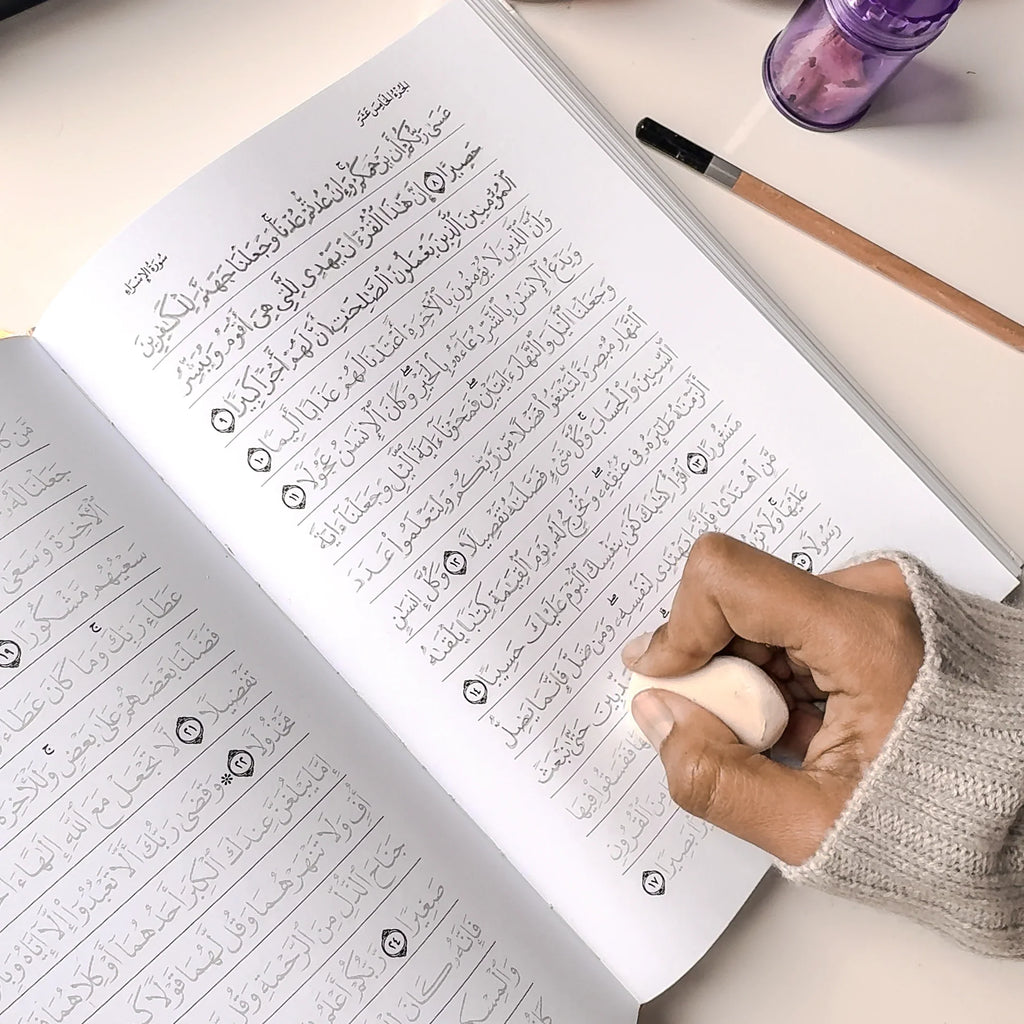 الجُزْءُ الخَامِسَ عَشَرَ
سُورَةُ الإِسْرَاءِ
عَسَىٰ رَبُّكُمْ أَن يَرْحَمَكُمْ ۚ وَإِنْ عُدتُّمْ عُدْنَا ۚ وَجَعَلْنَا جَهَنَّمَ لِلْكَٰفِرِينَ
حَصِيرًا ٨ إِنَّ هَٰذَا ٱلْقُرْءَانَ يَهْدِى لِلَّتِى هِىَ أَقْوَمُ وَيُبَشِّرُ
ٱلْمُؤْمِنِينَ ٱلَّذِينَ يَعْمَلُونَ ٱلصَّٰلِحَٰتِ أَنَّ لَهُمْ أَجْرًا كَبِيرًا ٩
وَأَنَّ ٱلَّذِينَ لَا يُؤْمِنُونَ بِٱلْءَاخِرَةِ أَعْتَدْنَا لَهُمْ عَذَابًا أَلِيمًا ١٠
وَيَدْعُ ٱلْإِنسَٰنُ بِٱلشَّرِّ دُعَآءَهُۥ بِٱلْخَيْرِ ۖ وَكَانَ ٱلْإِنسَٰنُ عَجُولًا ١١
وَجَعَلْنَا ٱلَّيْلَ وَٱلنَّهَارَ ءَايَتَيْنِ ۖ فَمَحَوْنَآ ءَايَةَ ٱلَّيْلِ وَجَعَلْنَآ ءَايَةَ
ٱلنَّهَارِ مُبْصِرَةً لِّتَبْتَغُوا۟ فَضْلًا مِّن رَّبِّكُمْ وَلِتَعْلَمُوا۟ عَدَدَ
ٱلسِّنِينَ وَٱلْحِسَابَ ۚ وَكُلَّ شَىْءٍ فَصَّلْنَٰهُ تَفْصِيلًا ١٢ وَكُلَّ إِنسَٰنٍ
أَلْزَمْنَٰهُ طَٰٓئِرَهُۥ فِى عُنُقِهِۦ ۖ وَنُخْرِجُ لَهُۥ يَوْمَ ٱلْقِيَٰمَةِ كِتَٰبًا يَلْقَىٰهُ
مَنشُورًا ١٣ ٱقْرَأْ كِتَٰبَكَ كَفَىٰ بِنَفْسِكَ ٱلْيَوْمَ عَلَيْكَ حَسِيبًا ١٤
مَّنِ ٱهْتَدَىٰ فَإِنَّمَا يَهْتَدِى لِنَفْسِهِۦ ۖ وَمَن ضَلَّ فَإِنَّمَا يَضِلُّ
عَلَيْهَا ۚ وَلَا تَزِرُ حَتَّىٰ نَبْعَثَ
رَسُولًا ١٥ فَفَسَقُوا۟ فِيهَا
مِنَ ٱلْقُرُونِ
بَصِيرًا ١٧
جَعَلْنَا لَهُۥ
ٱلْءَاخِرَةَ وَسَعَىٰ
سَعْيُهُم مَّشْكُورًا ١٩
عَطَآءِ رَبِّكَ ۚ وَمَا كَانَ عَطَآءُ
فَضَّلْنَا بَعْضَهُمْ عَلَىٰ بَعْضٍ ۚ وَلَلْءَاخِرَةُ
تَفْضِيلًا ٢١ لَّا تَجْعَلْ مَعَ ٱللَّهِ إِلَٰهًا ءَاخَرَ
مَّخْذُولًا ٢٢ * وَقَضَىٰ رَبُّكَ أَلَّا تَعْبُدُوٓا۟ إِلَّآ إِيَّاهُ
إِمَّا يَبْلُغَنَّ عِندَكَ ٱلْكِبَرَ أَحَدُهُمَآ أَوْ كِلَاهُمَا
أُفٍّ وَلَا تَنْهَرْهُمَا وَقُل لَّهُمَا قَوْلًا
جَنَاحَ ٱلذُّلِّ مِنَ ٱلرَّحْمَةِ وَقُل
صَغِيرًا ٢٤ رَّبُّكُمْ أَعْلَمُ
فَإِنَّهُۥ كَانَ